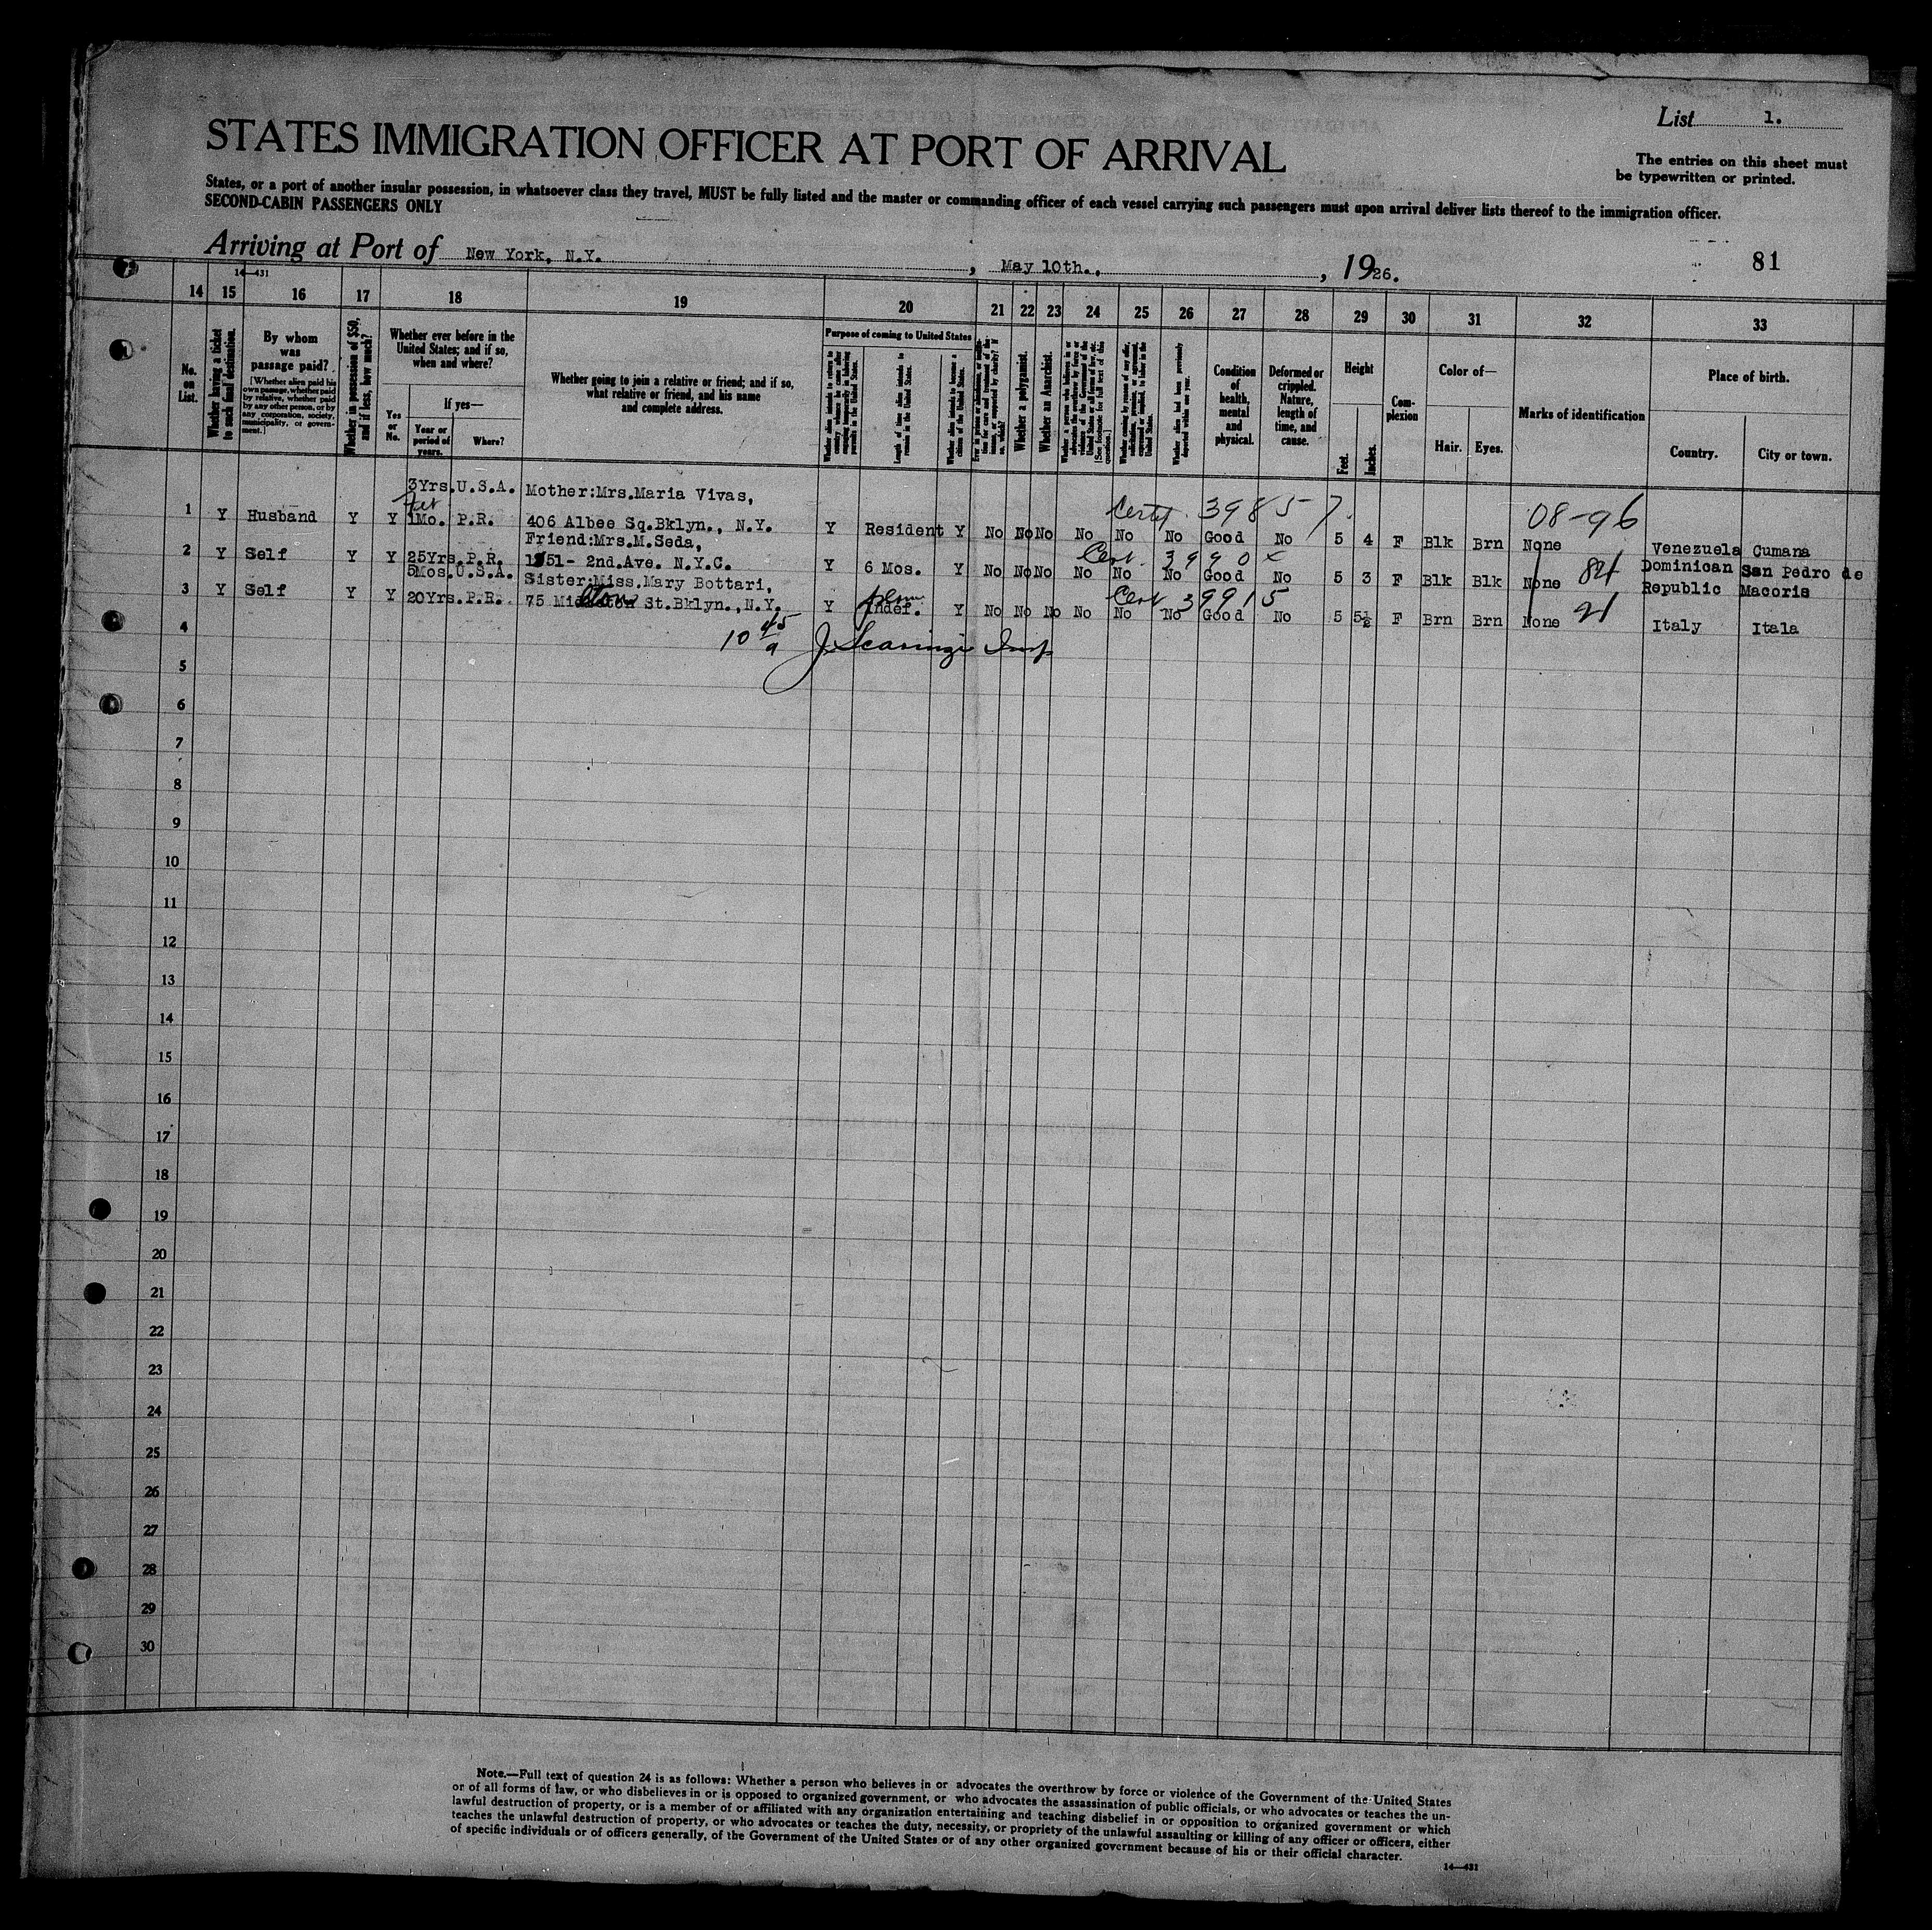 List 1.
STATES IMMIGRATION OFFICER AT PORT OF ARRIVAL
The entries on this sheet must
be typewritten or printed.
States, or a port of another insular possession, in whatsoever class they travel, MUST be fully listed and the master or commanding officer of each vessel carrying such passengers must upon arrival deliver lists thereof to the immigration officer.
SECOND-CABIN PASSENGERS ONLY
Arriving at Port of New York, N.Y. , May 10th., , 1926.
81
14—431
14 15 16 17 18 19 20 21 22 23 24 25 26 27 28 29 30 31 32 33
No. on List.
Whether having a ticket to such final destination.
By whom was passage paid?
[Whether alien paid his own passage, whether paid by relative, whether paid by any other person, or by any corporation, society, municipality, or government.]
Whether in possession of $50, and if less, how much?
Whether ever before in the United States; and if so, when and where?
Yes or No.
If yes—
Year or period of years.
Where?
Whether going to join a relative or friend; and if so, what relative or friend, and his name and complete address.
Purpose of coming to United States
Length of time alien intends to remain in the United States.
Whether alien intends to become a citizen of the United States.
Whether a polygamist.
Whether an Anarchist.
Whether alien had been previously deported within one year.
Condition of health, mental and physical.
Deformed or crippled. Nature, length of time, and cause.
Height
Feet.
Inches.
Complexion
Color of—
Hair.
Eyes.
Marks of identification
Place of birth.
Country.
City or town.
3Yrs. U.S.A. Mother:Mrs.Maria Vivas, 08-96
1 Y Husband Y Y 1Mo. P.R. 406 Albee Sq.Bklyn., N.Y. Y Resident Y No No No No No No Good No 5 4 F Blk Brn None Venezuela Cumana
39857.
Friend:Mrs.M.Seda,
2 Y Self Y Y 25Yrs.P.R. 1851- 2nd.Ave. N.Y.C. Y 6 Mos. Y No No No No No No Good No 5 3 F Blk Blk None 84 Dominican Republic San Pedro de Macoris
Cert. 3990
5Mos.U.S.A. Sister:Miss.Mary Bottari,
3 Y Self Y Y 20Yrs.P.R. 75 St.Bklyn.,N.Y. Y Indef. Y No No No No No No Good No 5 5½ F Brn Brn None 21 Italy Itala
Cert 39915
4 10 45 a J Scaringi Insp
5
6
7
8
9
10
11
12
13
14
15
16
17
18
19
20
21
22
23
24
25
26
27
28
29
30
Note.—Full text of question 24 is as follows: Whether a person who believes in or advocates the overthrow by force or violence of the Government of the United States
or of all forms of law, or who disbelieves in or is opposed to organized government, or who advocates the assassination of public officials, or who advocates or teaches the un-
lawful destruction of property, or is a member of or affiliated with any organization entertaining and teaching disbelief in or opposition to organized government or which
teaches the unlawful destruction of property, or who advocates or teaches the duty, necessity, or propriety of the unlawful assaulting or killing of any officer or officers, either
of specific individuals or of officers generally, of the Government of the United States or of any other organized government because of his or their official character.
14—431